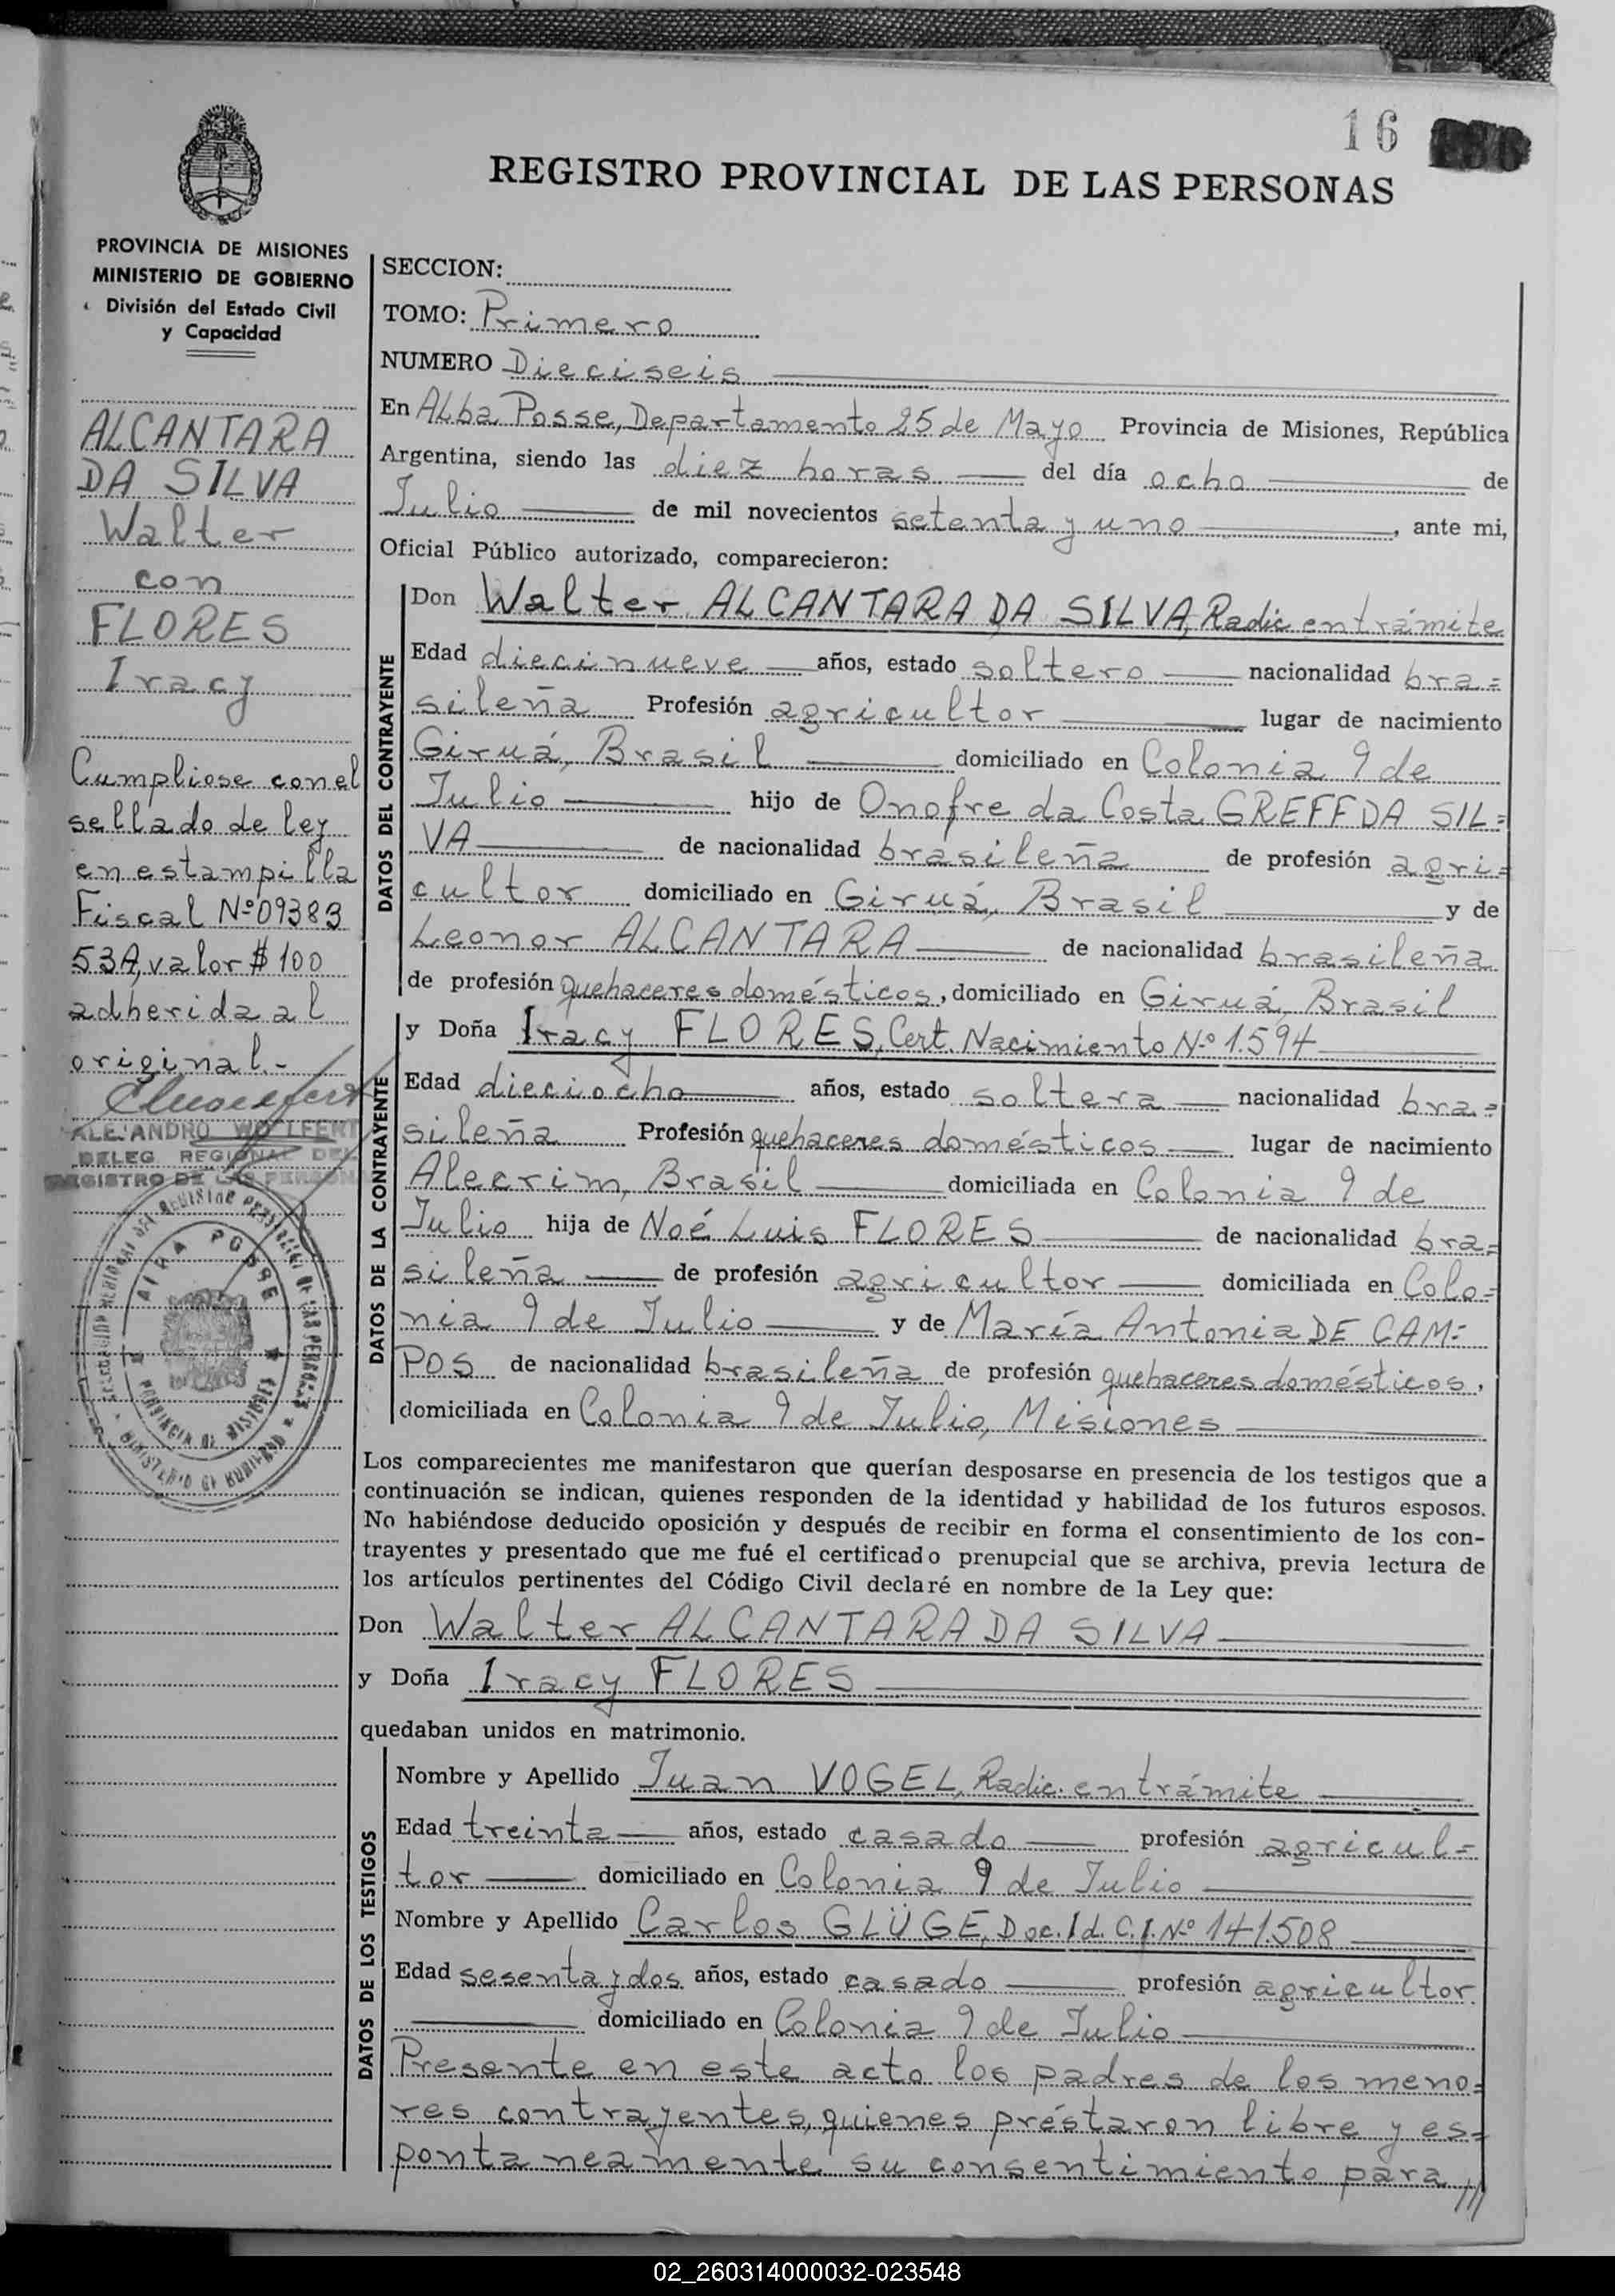 16
REGISTRO PROVINCIAL DE LAS PERSONAS
PROVINCIA DE MISIONES
MINISTERIO DE GOBIERNO
División del Estado Civil
y Capacidad
ALCANTARA
DA SILVA
Walter
con
FLORES
Iracy
Cumpliose con el
sellado de ley
en estampilla
Fiscal Nº 09383
53A, valor $ 100
adherida al
original.-
ALEJANDRO WOLFERT
DELEG. REGIONAL DEL
REGISTRO DE LAS PERSONAS
SECCION:
TOMO: Primero
NUMERO Dieciseis
En Alba Posse, Departamento 25 de Mayo Provincia de Misiones, República
Argentina, siendo las diez horas del día ocho de
Julio de mil novecientos setenta y uno, ante mi,
Oficial Público autorizado, comparecieron:
DATOS DEL CONTRAYENTE
Don Walter ALCANTARA DA SILVA, Radic. en trámite
Edad diecinueve años, estado soltero nacionalidad bra=
sileña Profesión agricultor lugar de nacimiento
Giruá, Brasil domiciliado en Colonia 9 de
Julio hijo de Onofre da Costa GREFF DA SIL=
VA de nacionalidad brasileña de profesión agri=
cultor domiciliado en Giruá, Brasil y de
Leonor ALCANTARA de nacionalidad brasileña
de profesión quehaceres domésticos, domiciliado en Giruá, Brasil
DATOS DE LA CONTRAYENTE
y Doña Iracy FLORES, Cert. Nacimiento Nº 1.594
Edad dieciocho años, estado soltera nacionalidad bra=
sileña Profesión quehaceres domésticos lugar de nacimiento
Alecrim, Brasil domiciliada en Colonia 9 de
Julio hija de Noé Luis FLORES de nacionalidad bra=
sileña de profesión agricultor domiciliada en Colo=
nia 9 de Julio y de María Antonia DE CAM=
POS de nacionalidad brasileña de profesión quehaceres domésticos,
domiciliada en Colonia 9 de Julio, Misiones
Los comparecientes me manifestaron que querían desposarse en presencia de los testigos que a
continuación se indican, quienes responden de la identidad y habilidad de los futuros esposos.
No habiéndose deducido oposición y después de recibir en forma el consentimiento de los con-
trayentes y presentado que me fué el certificado prenupcial que se archiva, previa lectura de
los artículos pertinentes del Código Civil declaré en nombre de la Ley que:
Don Walter ALCANTARA DA SILVA
y Doña Iracy FLORES
quedaban unidos en matrimonio.
DATOS DE LOS TESTIGOS
Nombre y Apellido Juan VOGEL, Radic. en trámite
Edad treinta años, estado casado profesión agricul=
tor domiciliado en Colonia 9 de Julio
Nombre y Apellido Carlos GLÜGE, Doc. Id. C.I. Nº 141.508
Edad sesenta y dos años, estado casado profesión agricultor
domiciliado en Colonia 9 de Julio
Presente en este acto los padres de los meno=
res contrayentes, quienes préstaron libre y es=
pontaneamente su consentimiento para ///
02_260314000032-023548